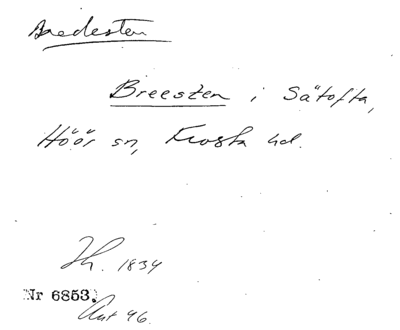 Bredesten
Breesten i Sätofta,
Höör sn, Frosta hd.
Th. 1834
Nr 6853.
Ant 46.